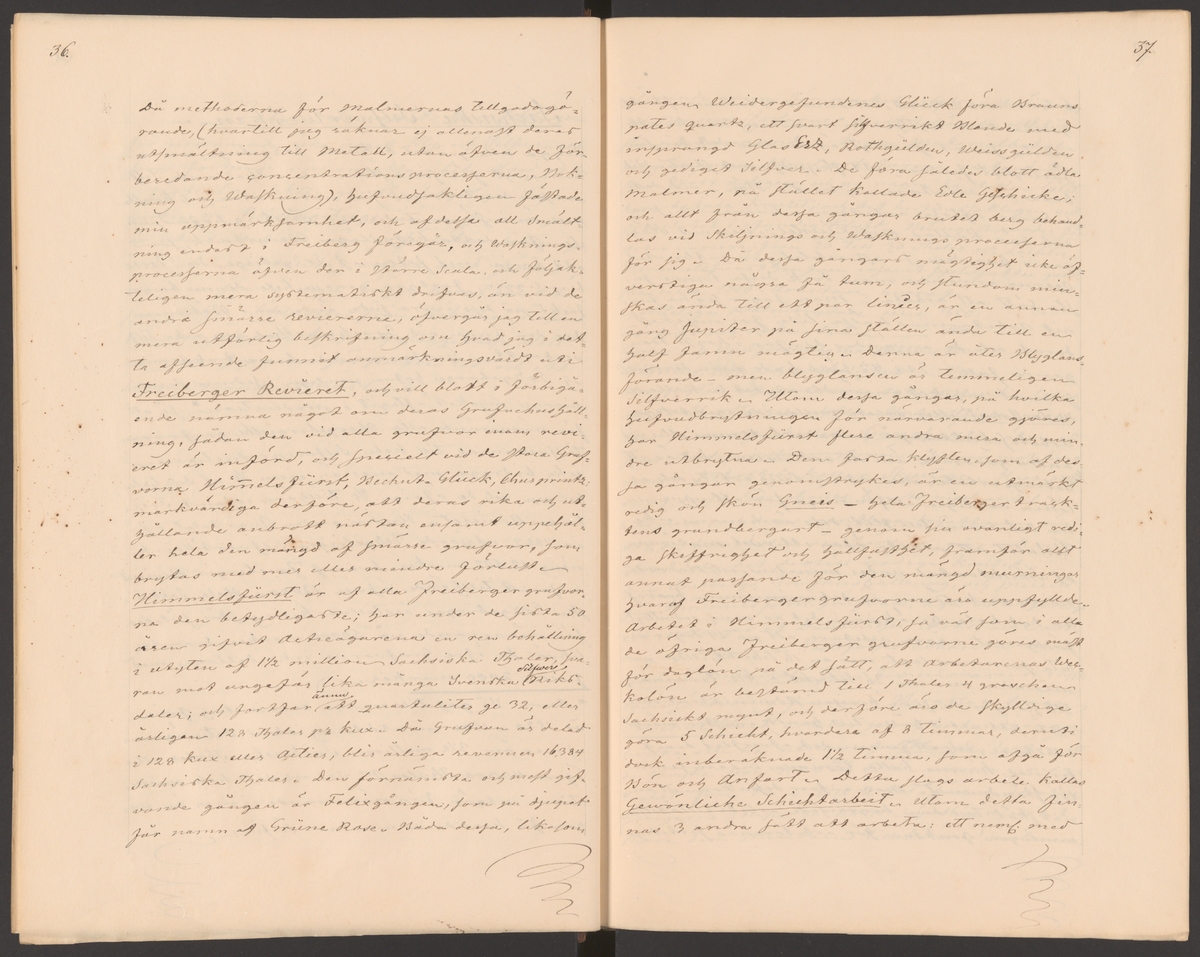 36.
Då methoderna för Malmernas tillgodogö-
rande, (hvartill jag räknar ej allenast deras
utsmältning till Metall, utan äfven de för-
beredande concentrations processerna, Bok-
ning och Waskning), hufvudsakligen fästade
min uppmärksamhet, och af dessa all Smält-
ning endast i Freiberg föregår, och Wasknings-
processerna äfven der i större Scala och följak-
teligen mera systematiskt drifvas, än vid de
andra smärre Reviererna, öfvergår jag till en
mera utförlig beskrifning om hvad jag i det-
ta afseende funnit anmärkningsvärdt uti
Freiberger Revieret, och vill blott i förbigå-
ende nämna något om deras Grufvehushåll-
ning, sådan den vid alla grufvor inom revi-
eret är införd, och specielt vid de stora Gruf-
vorna Himmelsfürst, Beschert Glück, Churprintz,
märkvärdiga derföre, att deras rika och ut-
hållande anbrott nästan ensamt uppehål-
ler hela den mängd af smärre grufvor, som
brytas med mer eller mindre förlust.
Himmelsfürst är af alla Freiberger grufvor-
na den betydligaste; har under de sista 50
åren gifvit Actieägarena en ren behållning
i utbyten af 1½ million Sachsiska Thaler, sva-
ran mot ungefär lika många Svenska Silfver Riks-
daler; och fortfar ännu att quartaliter ge 32, eller
årligen 128 Thaler pr kux. Då Grufvan är delad
i 128 kux eller Actier, blir årliga revenuen 16384
Sachsiska Thaler. Den förnämsta och mest gif-
vande gången är Felixgången, som på djupet
får namn af Grüne Rose. Båda dessa, likasom
37.
gången Weidergefundenes Glück föra Brauns
pates quartz, ett svart silfverrikt Blende med
insprängd Glas Erz, Rothgülden, Weissgülden
och gediget Silfver. De föra således blott ädla
Malmer, på stället kallade Edle Geschicke;
och allt från dessa gångar brutet berg behand-
las vid Skiljnings och Wasknings processerna
för sig. Då dessa gångars mägtighet icke öf-
verstiga några få tum, och stundom min-
skas ända till ett par linier, är en annan
gång Jupiter på sina ställen ända till en
half famn mägtig. Denna är åter Blyglans
förande - men blyglansen är temmeligen
Silfverrik. Utom dessa gångar, på hvilka
hufvudbrytningen för närvarande göres,
har Himmelsfürst flere andra mera och min-
dre utbrytna. Den fasta klyften, som af des-
sa gångar genomstrykes, är en utmärkt
redig och skön Gneis - hela Freiberger track-
tens grundbergart - genom sin ovanligt redi-
ga skiffrighet och hållfasthet, framför allt
annat passande för den mängd murningar
hvaraf Freiberger grufvorne äro uppfyllde.
Arbetet i Himmelsfürst, så väl som i alla
de öfriga Freiberger grufvorne göres mäst
för daglön på det sätt, att Arbetarenas Wec-
kolön är bestämd till 1 Thaler 4 groschen
Sachsiskt mynt, och derföre äro de skyldige
göra 5 Schicht, hvardera af 8 timmar, deruti
dock inberäknade 1½ timma, som afgå för
Bön och Anfart. Detta slags arbete kallas
Gewönliche Schichtarbeit. Utom detta fin-
nas 3 andra sätt att arbeta: ett neml. med